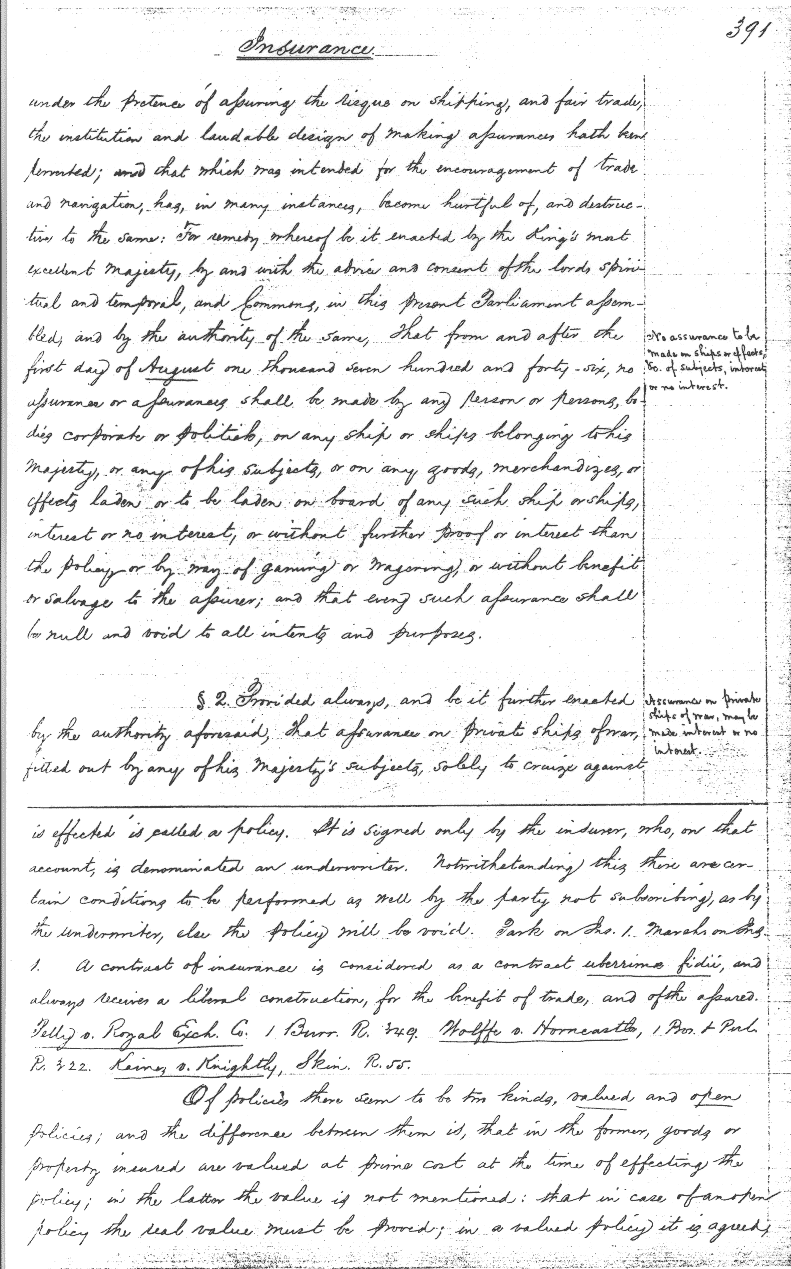 391
Insurance.
under the pretence of assuring the risque on shipping, and fair trade,
the institution and laudable design of making assurances hath been
perverted; and that which was intended for the encouragement of trade
and navigation, has, in many instances, become hurtful of, and destruc-
tive to the same: For remedy whereof be it enacted by the King's most
excellent Majesty, by and with the advice and consent of the lords spiri-
tual and temporal, and Commons, in this present Parliament assem-
bled, and by the authority of the same, That from and after the
first day of August one thousand seven hundred and forty-six, no
assurance or assurances shall be made by any person or persons, bo-
dies corporate or politick, on any ship or ships belonging to his
Majesty, or any of his subjects, or on any goods, merchandizes, or
effects laden or to be laden on board of any such ship or ships,
interest or no interest, or without further proof or interest than
the policy, or by way of gaming or wagering, or without benefit
or salvage to the assurer; and that every such assurance shall
be null and void to all intents and purposes.
No assurance to be
made on ships or effects,
&c. of subjects, interest
or no interest.
§ 2. Provided always, and be it further enacted
by the authority aforesaid, That assurance on private ships of war,
fitted out by any of his Majesty's subjects, solely to cruize against
Assurance on private
ships of war, may be
made interest or no
interest.
is effected is called a policy. It is signed only by the insurer, who, on that
account, is denominated an underwriter. Notwithstanding this there are cer-
tain conditions to be performed as well by the party not subscribing, as by
the underwriter, else the policy will be void. Park on Ins. 1. Marsh on Ins
1. A contract of insurance is considered as a contract uberrimæ fidii, and
always receives a liberal construction, for the benefit of trade, and of the assured.
Pelly v. Royal Exch. Co. 1 Burr. R. 349. Wolffe v. Horncastle, 1 Bos. & Pul.
R. 322. Kaines v. Knightly, Skin. R. 55.
Of policies there seem to be two kinds, valued and open
policies; and the difference between them is, that in the former, goods or
property insured are valued at prime cost at the time of effecting the
policy; in the latter the value is not mentioned: that in case of an open
policy the real value must be proved; in a valued policy it is agreed,